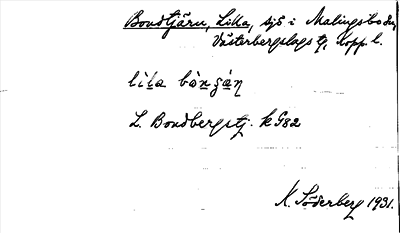 Bondtjärn, Lilla, sjö i Malingsbo sn,
Västerbergslags tg, Kopp. l.
lila
L. Bondbergstj. k G82
K. Söderberg 1931.